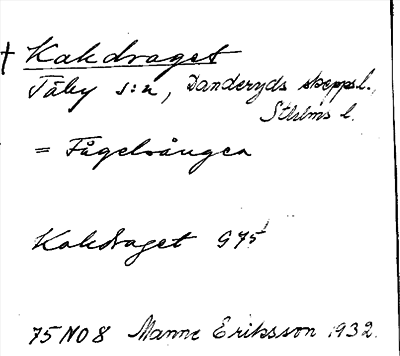 † Kakdraget
Täby s:n, Danderyds skeppsl.,
Sthlms l.
= Fågelsången
Kakdraget G75
75 NO 8 Manne Eriksson 1932.